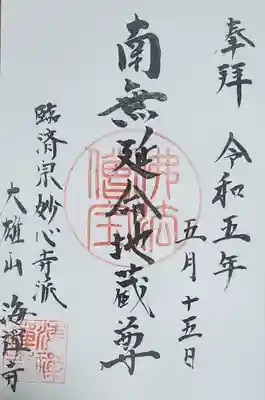 奉拝 令和五年
五月十五日
南無延命地蔵尊
佛法僧宝
臨済宗妙心寺派
大雄山 海禅寺